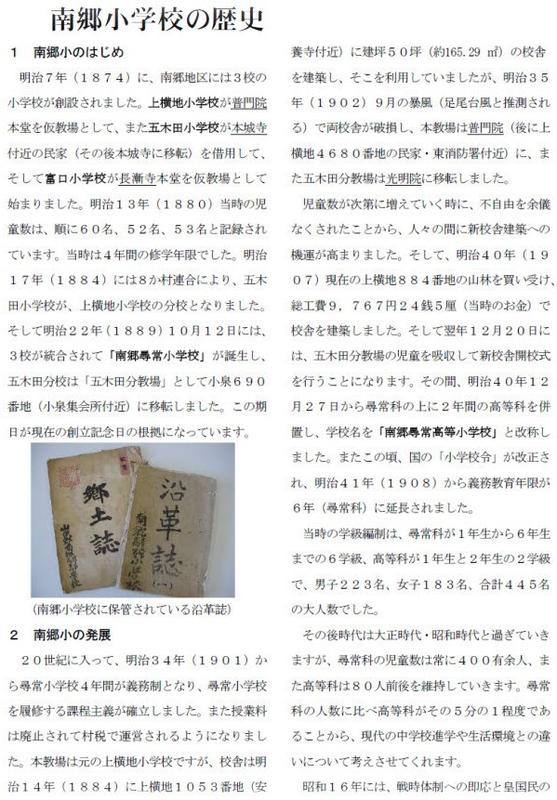 南郷小学校の歴史
１　南郷小のはじめ
　明治７年（１８７４）に、南郷地区には３校の
小学校が創設されました。上横地小学校が普門院
本堂を仮教場として、また五木田小学校が本城寺
付近の民家（その後本城寺に移転）を借用して、
そして富口小学校が長漸寺本堂を仮教場として
始まりました。明治１３年（１８８０）当時の児
童数は、順に６０名、５２名、５３名と記録され
ています。当時は４年間の修学年限でした。明治
１７年（１８８４）には８か村連合により、五木
田小学校が、上横地小学校の分校となりました。
そして明治２２年（１８８９）１０月１２日には、
３校が統合されて「南郷尋常小学校」が誕生し、
五木田分校は「五木田分教場」として小泉６９０
番地（小泉集会所付近）に移転しました。この期
日が現在の創立記念日の根拠になっています。
郷土誌
沿革誌
（一）
（南郷小学校に保管されている沿革誌）
２　南郷小の発展
　２０世紀に入って、明治３４年（１９０１）か
ら尋常小学校４年間が義務制となり、尋常小学校
を履修する課程主義が確立しました。また授業料
は廃止されて村税で運営されるようになりまし
た。本教場は元の上横地小学校ですが、校舎は明
治１４年（１８８４）に上横地１０５３番地（安
養寺付近）に建坪５０坪（約165.29 ㎡）の校舎
を建築し、そこを利用していましたが、明治３５
年（１９０２）９月の暴風（足尾台風と推測され
る）で両校舎が破損し、本教場は普門院（後に上
横地４６８０番地の民家・東消防署付近）に、ま
た五木田分教場は光明院に移転しました。
　児童数が次第に増えていく時に、不自由を余儀
なくされたことから、人々の間に新校舎建築への
機運が高まりました。そして、明治４０年（１９
０７）現在の上横地８８４番地の山林を買い受け、
総工費９，７６７円２４銭５厘（当時のお金）で
校舎を建築しました。そして翌年１２月２０日に
は、五木田分教場の児童を吸収して新校舎開校式
を行うことになります。その間、明治４０年１２
月２７日から尋常科の上に２年間の高等科を併
置し、学校名を「南郷尋常高等小学校」と改称し
ました。またこの頃、国の「小学校令」が改正さ
れ、明治４１年（１９０８）から義務教育年限が
６年（尋常科）に延長されました。
　当時の学級編制は、尋常科が１年生から６年生
までの６学級、高等科が１年生と２年生の２学級
で、男子２２３名、女子１８３名、合計４４５名
の大人数でした。
　その後時代は大正時代・昭和時代と過ぎていき
ますが、尋常科の児童数は常に４００有余人、ま
た高等科は８０人前後を維持していきます。尋常
科の人数に比べ高等科がその５分の１程度であ
ることから、現代の中学校進学や生活環境との違
いについて考えさせてくれます。
　昭和１６年には、戦時体制への即応と皇国民の